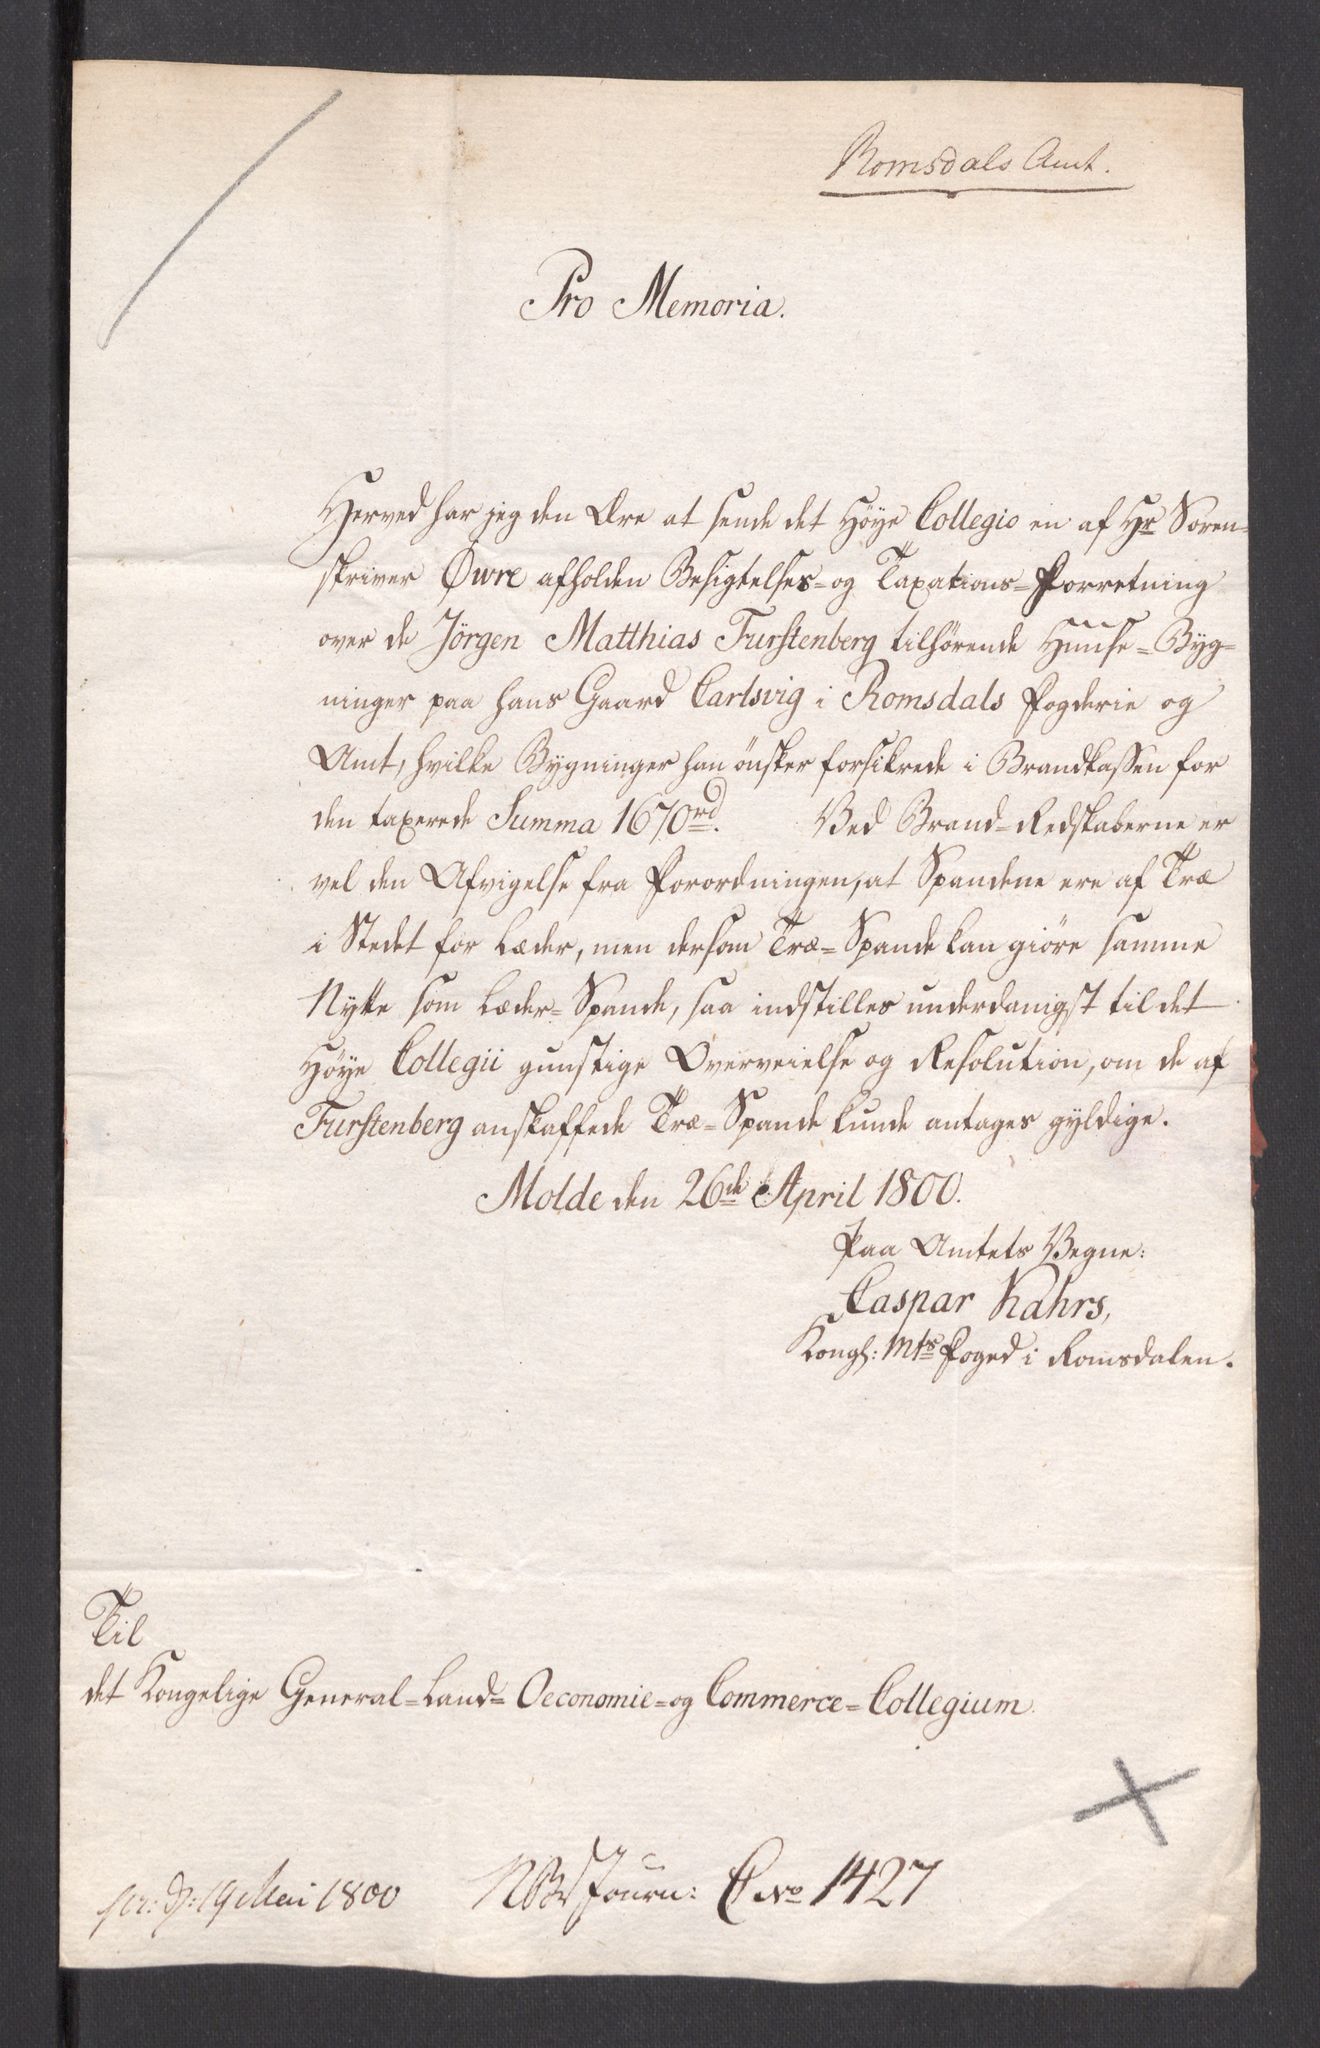 Romsdals Amt.
Pro Memoria.
Herved har jeg den Ære at sende det Høye Collegio en af Hr Soren-
skriver Øwre afholden Besigtelses- og Taxations-Forretning
over de Jörgen Matthias Furstenberg tilhørende Huuse-Byg-
ninger paa hans Gaard Carlsvig i Romsdals Fogderie og
Amt, hvilke Bygninger han önsker forsikrede i Brandkassen for
den taxerede Summa 1670rd. Ved Brand-Redskaberne er
vel den Afvigelse fra Forordningen, at Spandene ere af Træ
i Stedet for Læder, men dersom Træ-Spande kan giöre samme
Nytte som Læder-Spande, saa indstilles underdanigst til det
Høye Collegii gunstige Overveielse og Resolution, om de af
Furstenberg anskaffede Træ-Spande kunde antages gyldige.
Molde den 26de April 1800.
Paa Amtets Vegne:
Caspar Kahrs,
Kongl: Mts Foged i Romsdalen.
Til
det Kongelige General-Land-Oeconomie- og Commerce-Collegium.
pr: d: 19 Mai 1800 NB Journ: C No 1427